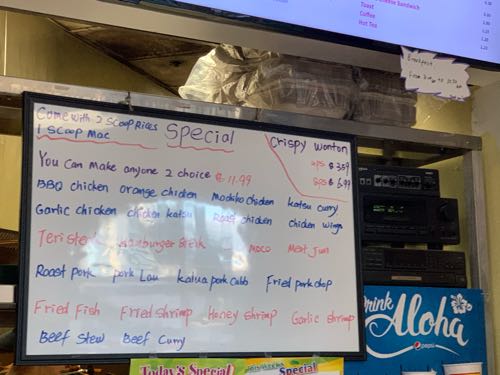 Cheese Sandwich
Toast
Coffee
Hot Tea
Breakfast
Come with 2 Scoop Rices
1 Scoop Mac
Special
Crispy Wonton
4ps $ 3.59
8ps $ 6.99
You can make anyone 2 choice $ 11.99
BBQ chicken orange chicken Mochiko chicken katsu curry
Garlic chicken chicken katsu Roast chicken chicken wings
Teri steak Hamburger steak Moco Meat Jun
Roast pork pork Lau kalua pork cabb Fried pork chop
Fried Fish Fried shrimp Honey shrimp Garlic shrimp
Beef stew Beef Curry
Drink
Aloha
pepsi
Today's Special
Special